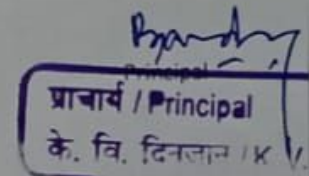 Principal
प्राचार्य / Principal
के. वि. दिनजान / K V.